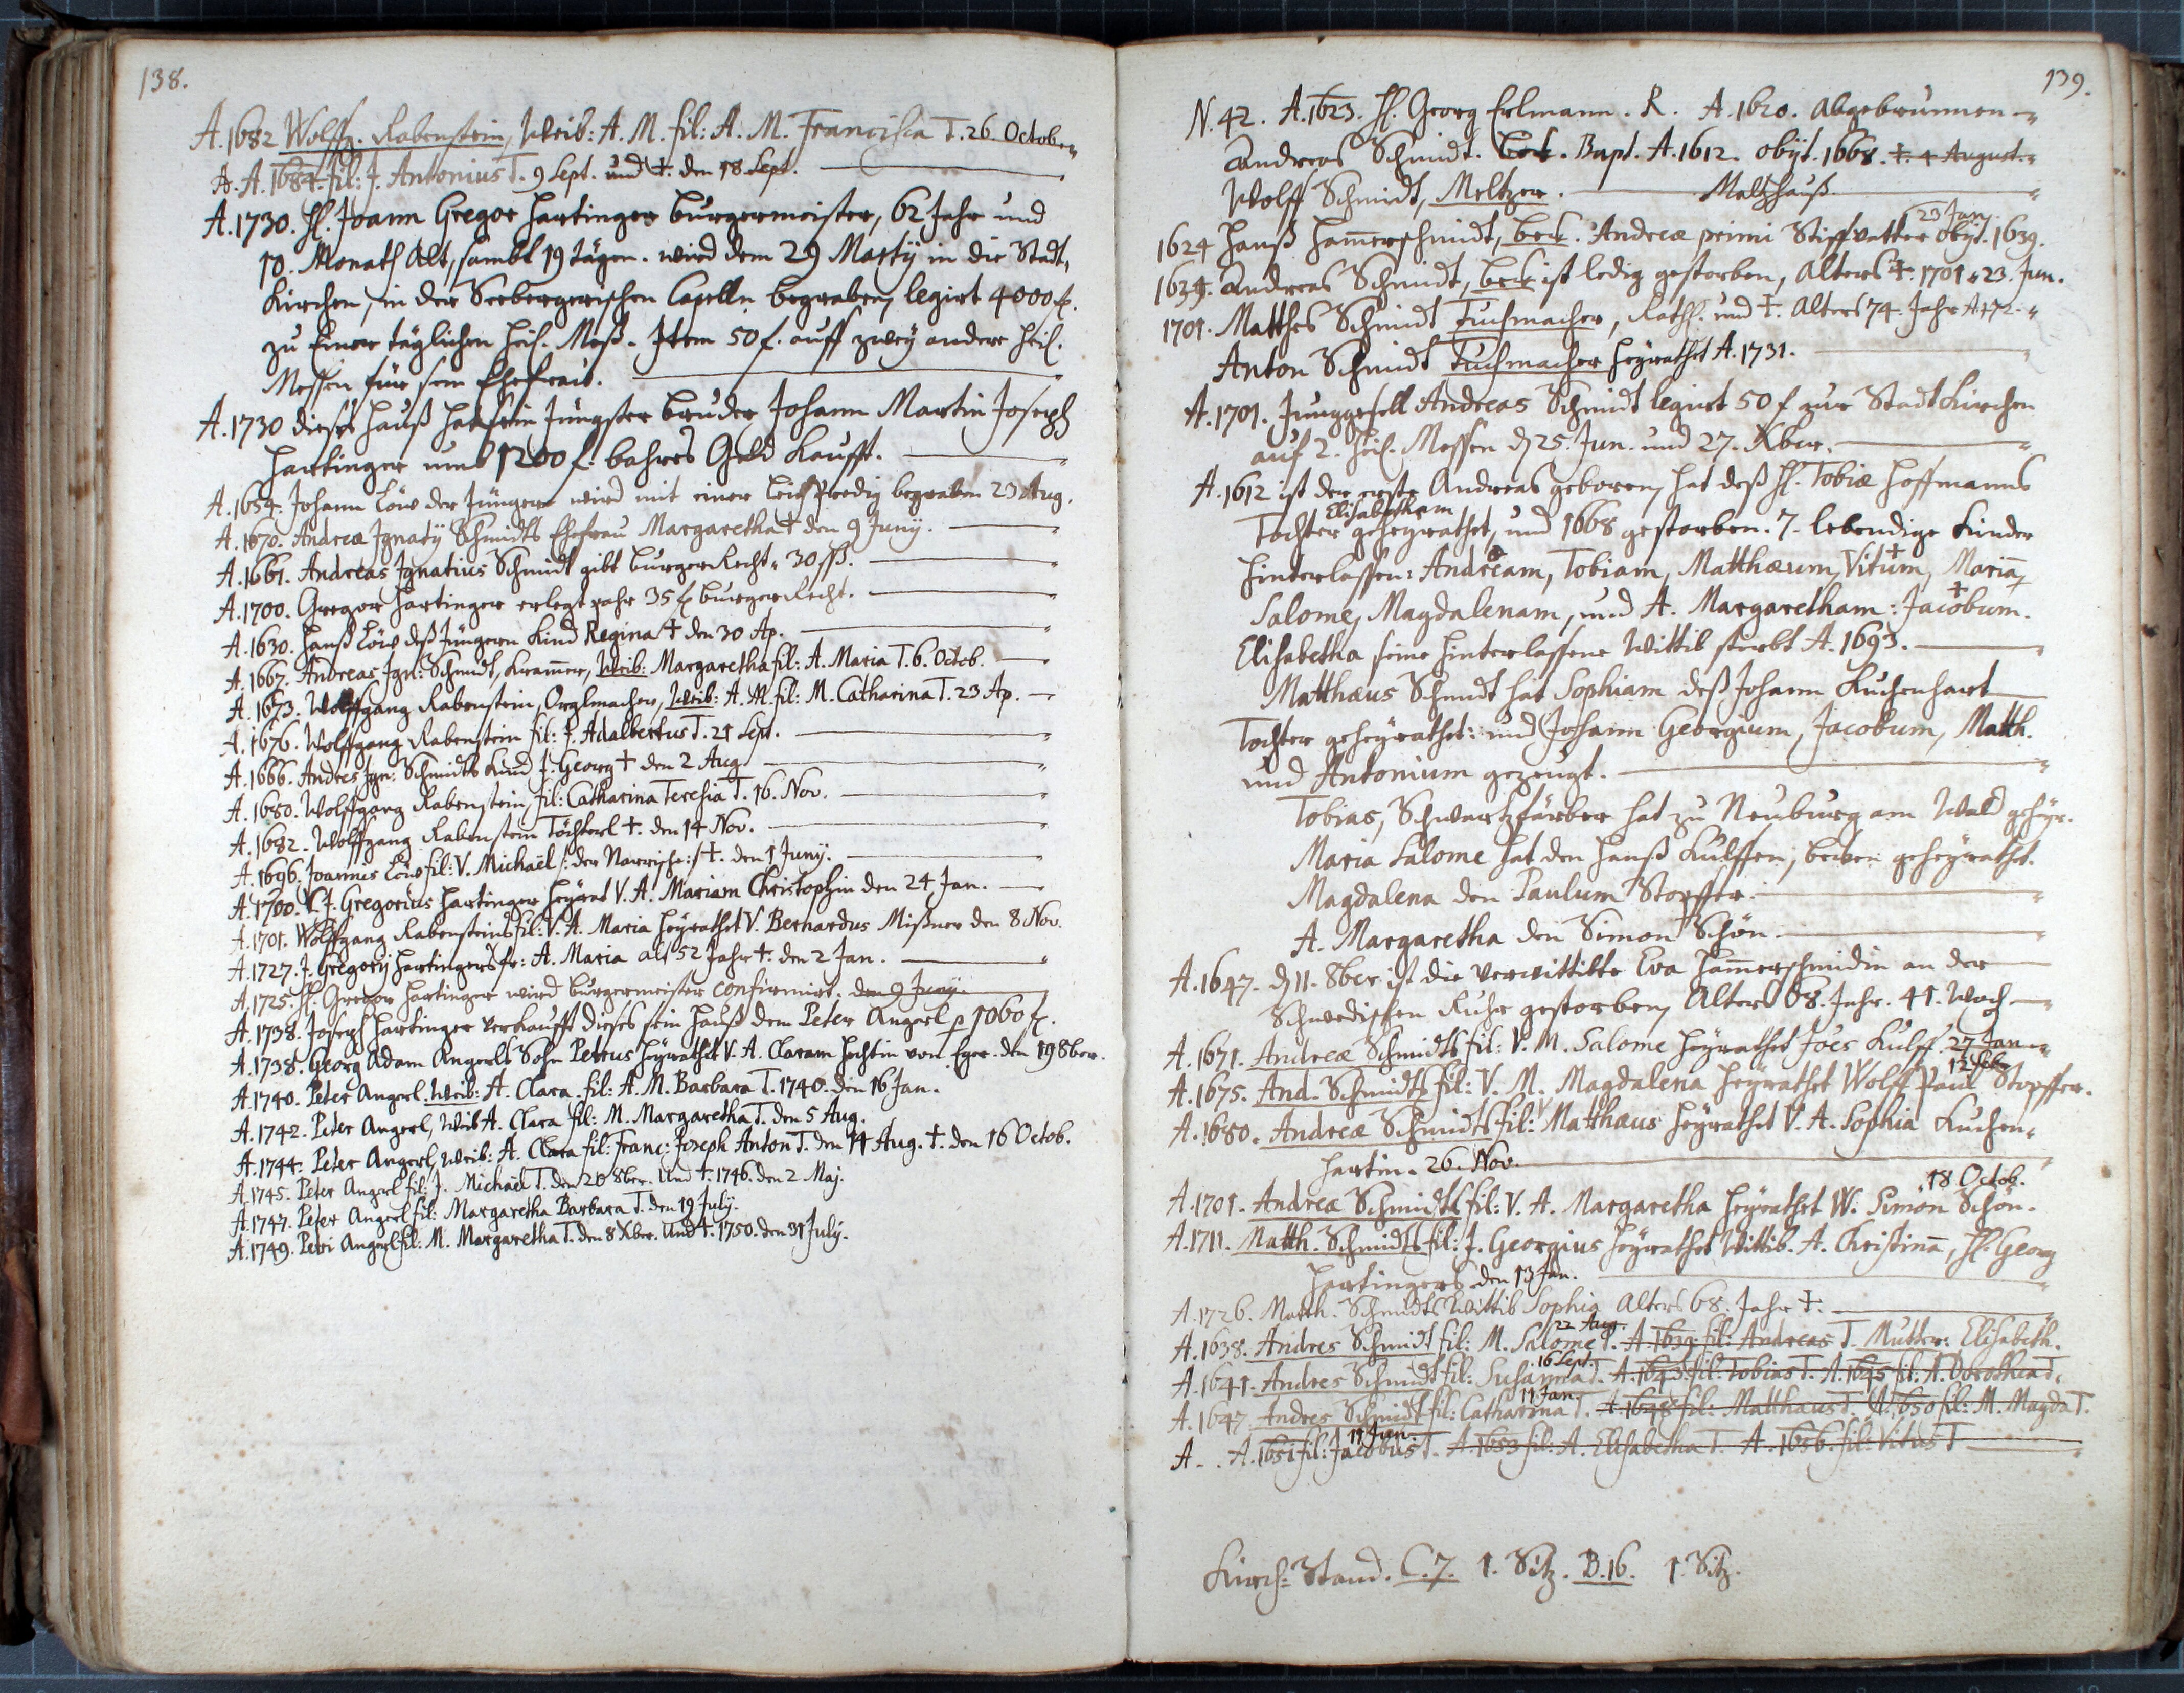 138.
A. 1682 Wolffg. Rabenstein, Weib: A. M. fil: A. M. Francisca T. 26. October
A. A. 1684. fil: J. Antonius T. 9 Sept. und †. den 18 Sept.
A. 1730. H. Joann Gregor Hartinger Burgermeister, 62 Jahr und
10. Monath Alt, sambt 19 tägen. wird dem 29 Martij in die Stadt,
Kirchen, in der Seebergerischen Capelln begraben, legirt 4000 f.
zu Einer täglichen heil. Meß. Item 50 f. auff zwey andere heil.
Messen für sein Ehefrau.
A. 1730 dieses Hauß hat sein Jüngster bruder Johann Martin Joseph
Hartinger umb 1200 f. bahres Geld Kaufft.
A. 1654. Johann Löw der Jüngere wird mit einer Leichpredig begraben 23 Aug.
A. 1670. Andreæ Ignatij Schmidts Ehefrau Margaretha † den 9 Junij.
A. 1661. Andreas Ignatius Schmidt gibt BurgerRecht 30 ß.
A. 1700. Gregor Hartinger erlegt 35 f BurgerRecht.
A. 1630. Hanß Löw deß Jüngern Kind Regina † den 30 Ap.
A. 1667. Andreas Ign: Schmidt, Kramer, Weib: Margaretha fil: A. Maria T. 6. Octob.
A. 1673. Wolffgang Rabenstein, Orglmacher, Weib: A. M. fil: M. Catharina T. 23 Ap.
A. 1676. Wolffgang Rabenstein fil: J. Adalbertus T. 21 Sept.
A. 1666. Andres Ign: Schmidts Kind J. Georg † den 2 Aug.
A. 1680. Wolffgang Rabenstein, fil: Catharina Teresia T. 16. Nov.
A. 1682. Wolffgang Rabenstein Töchterl †. den 14 Nov.
A. 1696. Joannis Löw fil: V. Michaël /: der Narrische :/ †. den 1 Junij.
A. 1700. V. J. Gregorius Hartinger heyrat V. A. Mariam Christophin den 24 Jan.
A. 1701. Wolffgang Rabensteins fil: V. A. Maria heyrathet V. Bernardus Mißner den 8 Nov.
A. 1727. J. Gregorij Hartingers fr: A. Maria alt 52 Jahr †. den 2 Jan.
A. 1725. H. Gregor Hartinger wird burgermeister confirmirt. den 9 Junij.
A. 1738. Joseph Hartinger verkaufft dieses sein Hauß dem Peter Angerl p 1060 f.
A. 1738. Georg Adam Angerls Sohn Petrus heyrathet V. A. Claram Hechtin von Eger. den 19 8ber.
A. 1740. Peter Angerl. Weib: A. Clara. fil: A. M. Barbara T. 1740. den 16 Jan.
A. 1742. Peter Angerl, Weib A. Clara fil: M. Margaretha T. den 5 Aug.
A. 1744. Peter Angerl, Weib: A. Clara fil: Franc: Joseph Anton T. den 11 Aug. †. den 16 Octob.
A. 1745. Peter Angerl fil: J. Michaël T. den 20 8ber. Und †. 1746. den 2 Maj.
A. 1747. Peter Angerl fil: Margaretha Barbara T. den 19 July.
A. 1749. Petri Angerl fil: M. Margaretha T. den 8 Xber. Und †. 1750. den 31 July.
139.
N. 42. A. 1623. H. Georg Erlmann. R. A. 1620. Abgebrunnen
Andreas Schmidt. Beck. Bapt. A. 1612. obijt. 1668. †. 4 August.
Wolff Schmidt, Meltzer. Maltzhauß
23 Jan.
1624 Hanß Hamerschmidt, beck. Andreæ primi Stiffvatter obijt. 1639.
1639. Andreas Schmidt, beck ist ledig gestorben, Alters †. 1701. 23. Jun.
1701. Matthes Schmidt Tuchmacher, Rathh. und †. Alters 74. Jahr A. 172.
Anton Schmidt Tuchmacher heyrathet A. 1731.
A. 1701. Junggesell Andreas Schmidt legirt 50 f zur Stadt Kirchen
auf 2. heil. Messen d 25. Jun. und 27. Xber.
A. 1612 ist der erste Andreas geboren, hat deß H. Tobiæ Hoffmanns
Elisabetham
Tochter geheyrathet, und 1668 gestorben. 7. lebendige Kinder
hinterlassen: Andream, Tobiam, Matthæum, Vitum, Maria
Salome, Magdalenam, und A. Margaretham: Jacobum.
Elisabetha seine hinterlassene Wittib sterbt A. 1693.
Matthæus Schmidt hat Sophiam deß Johann Kuchenhart
Tochter geheyrathet: und Johann Georgium, Jacobum, Matth.
und Antonium gezeugt.
Tobias, Schwartzfärber hat zu Neuburg am Wald geheyr.
Maria Salome hat den Hanß Kulffen, becken geheyrathet.
Magdalena den Paulum Stopffer.
A. Margaretha den Simon Schön.
A. 1647. d 11. 8ber. ist die verwittibte Eva Hamerschmidin an der
Schwedischen Ruhr gestorben, Alters 68. Jahr. 41. Woch
A. 1671. Andreæ Schmidts fil: V. M. Salome heyrathet Joes Kulff. 27 Jan
12 Feb.
A. 1675. And. Schmidts fil: V. M. Magdalena heyrathet Wolff Paul Stopffer.
A. 1680. Andreæ Schmidts fil: Matthæus heyrathet V. A. Sophia Kuchen,
hartin. 26. Nov.
18 Octob.
A. 1701. Andreæ Schmidts fil: V. A. Margaretha heyrathet W. Simon Schön.
A. 1711. Matth. Schmidts fil: J. Georgius heyrathet Wittib. A. Christina, H. Georg
Hartingers den 13 Jan.
A. 1726. Matth. Schmidts Wittib Sophia Alters 68. Jahr †.
22 Aug.
A. 1638. Andres Schmidt fil: M. Salome T. A. 1639. fil: Andreas T. Mutter: Elisabeth.
16 Sept.
A. 1641. Andres Schmidt fil: Susanna T. A. 1643. fil: Tobias T. A. 1645 fil: A. Dorothea T.
11 Jan.
A. 1647. Andres Schmidt fil: Catharina T. A. 1648 fil: Matthæus T. A. 1650 fil: M. Magda T.
11 Jun.
A. . A. 1651 fil: Jacobus T. A. 1653 fil: A. Elisabetha T. A. 1656. fil: Vitus T
Kirch: Stand. C. 7. 1. Sitz. B. 16. 1. Sitz.